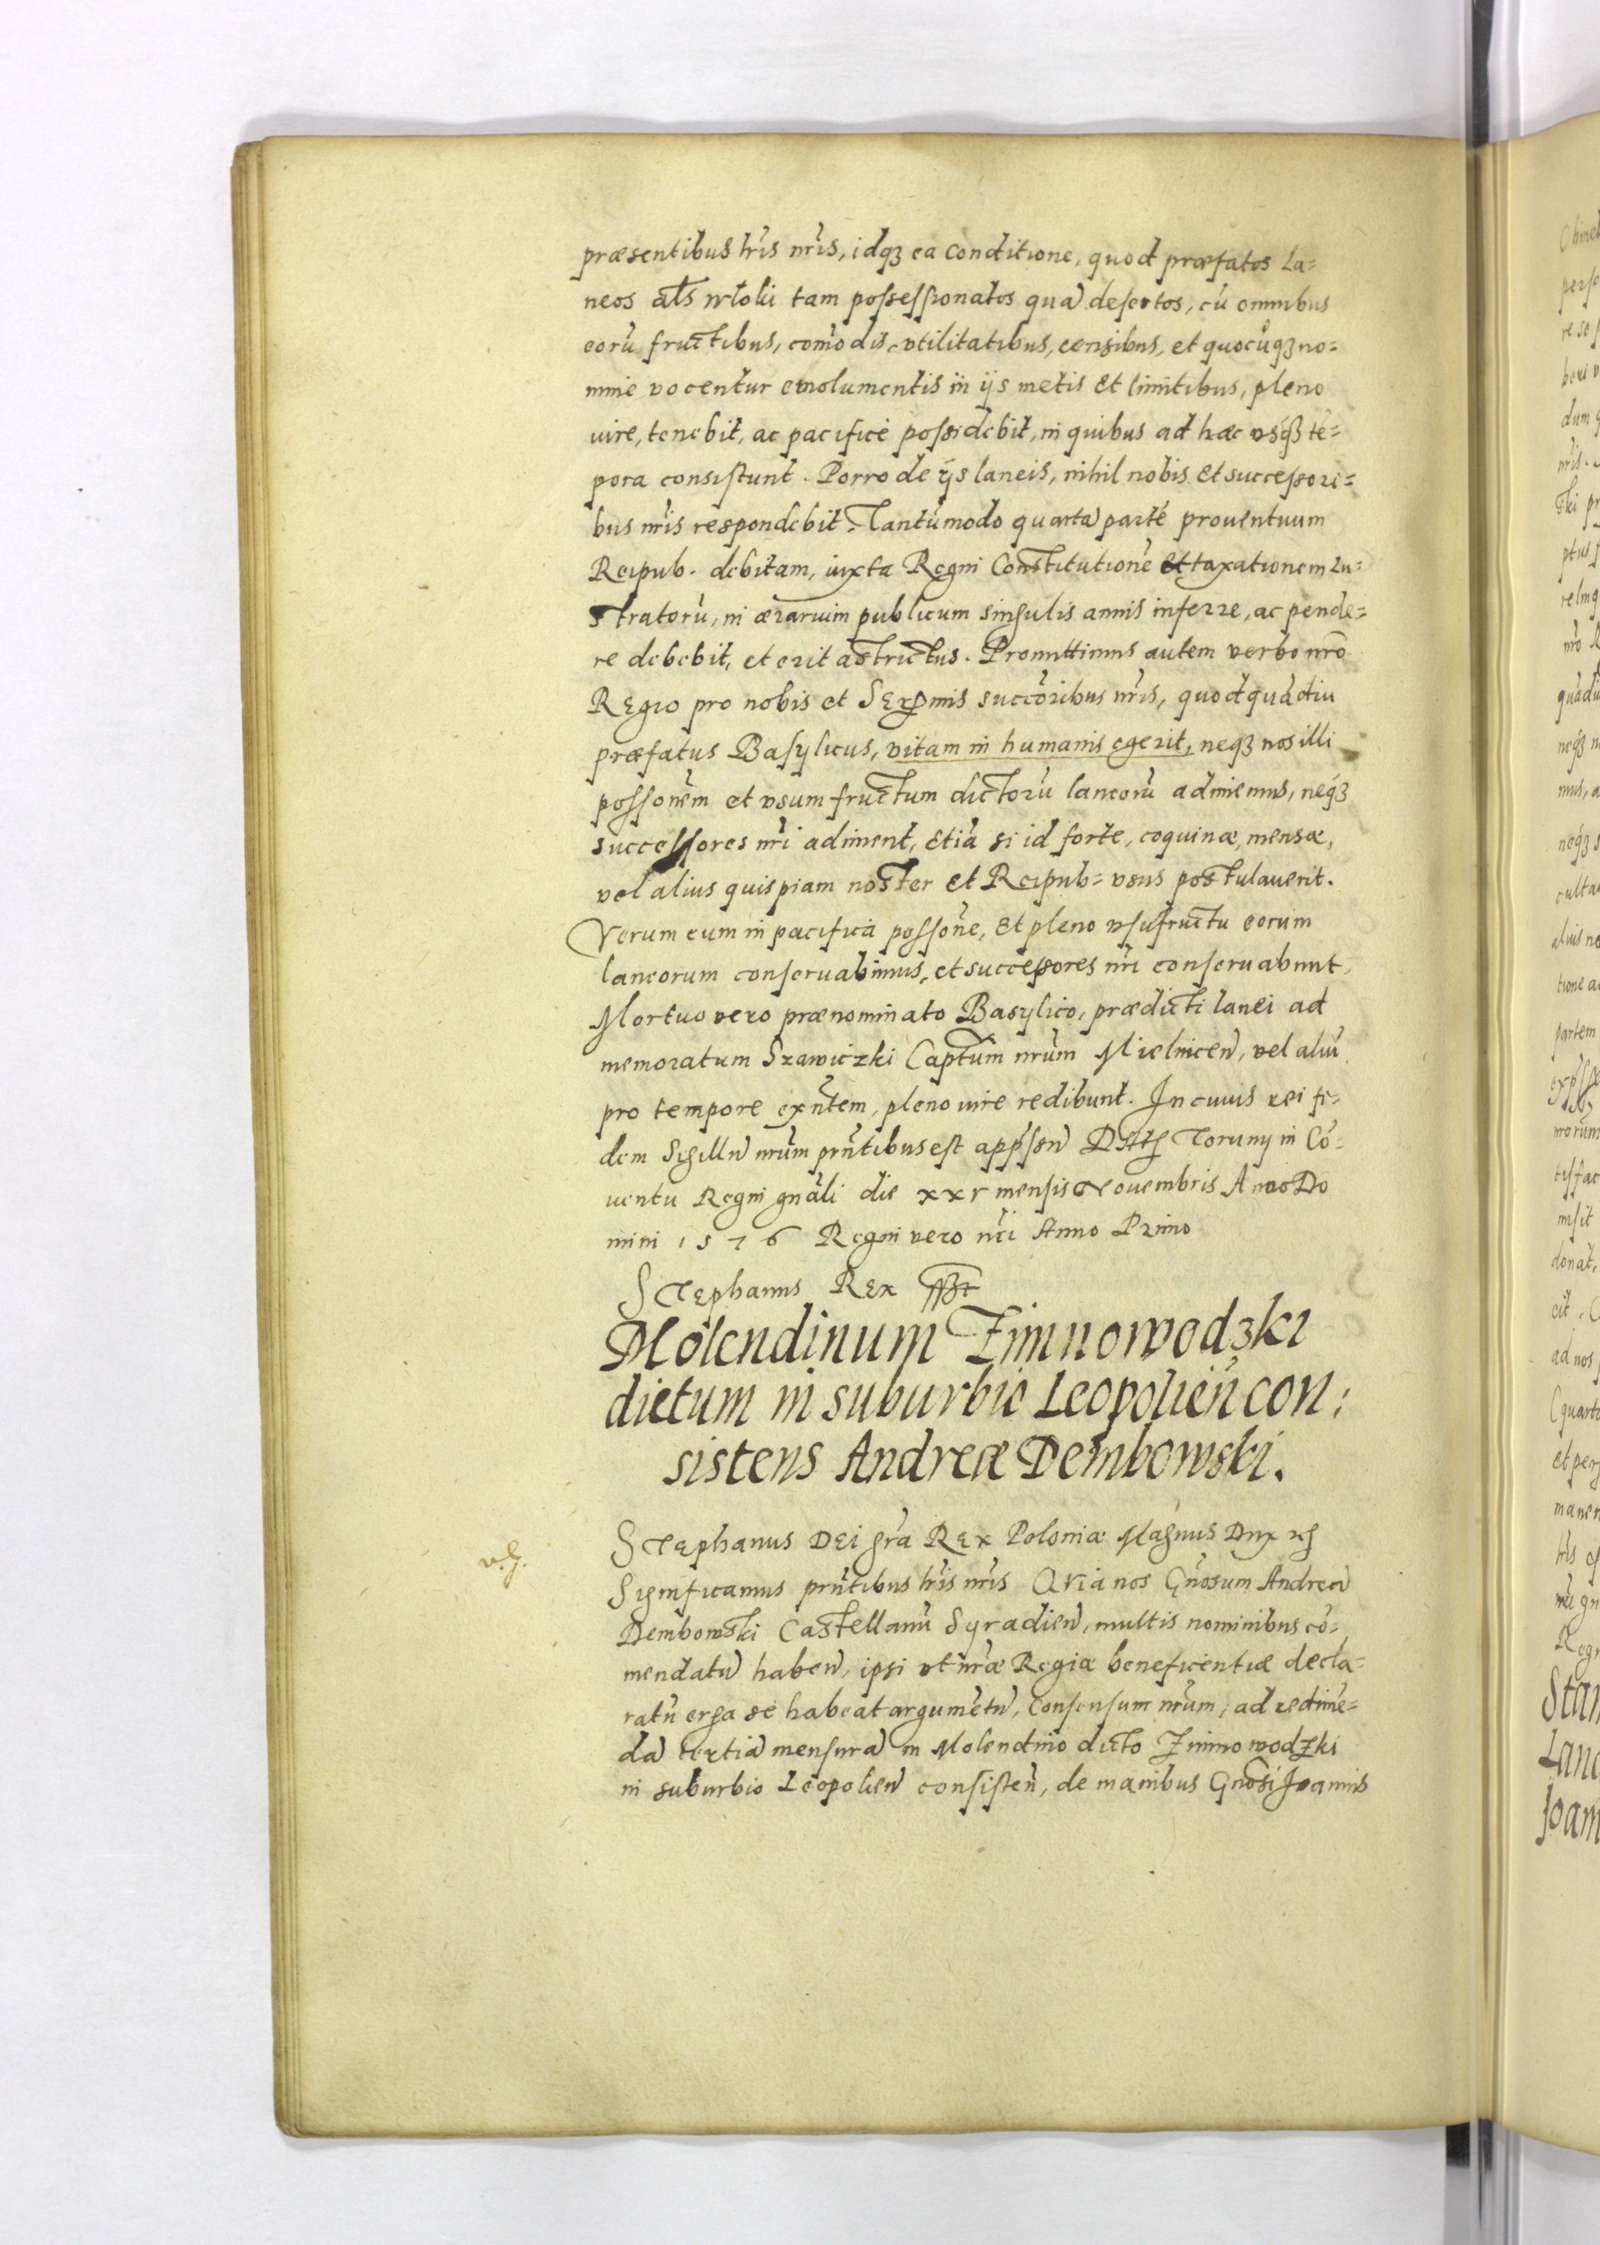 præsentibus lr̃is nr̃is, idqꝫ ea conditione, quod præfatos La=
neos als wloki tam possessionatos quā desertos, cū omnibus
eorū fructibus, com̃odis, vtilitatibus, censibus, et quocūqꝫ no=
mine vocentur emolumentis in ijs metis et limitibus, pleno
iure, tenebit, ac pacifice possidebit, in quibus ad hæc vsqꝫ tē=
pora consistunt. Porro de ijs laneis, nihil nobis et successori=
bus nr̃is respondebit. Tantūmodo quartā partē prouentuum
Reipub. debitam, iuxta Regni Constitutionē et taxationem Lu=
stratorū, in ærarium publicum singulis annis inferre, ac pende=
re debebit, et erit astrictus. Promittimus autem verbo nr̃o
Regio pro nobis et Serꝑmis succõribus nr̃is, quod quādiu
præfatus Basylicus, vitam in humanis egerit, neqꝫ nos illi
possonẽm et vsumfructum dictorū laneorū adimemus, neqꝫ
successores nr̃i adiment, Etiā si id forte, coquinæ, mensæ,
vel alius quispiam noster et Reipub= vsus postulauerit.
Verum eum in pacifica possonẽ, Et pleno vsufructu eorum
laneorum conseruabimus, et successores nr̃i conseruabunt,
Mortuo vero prænominato Basylico, prædicti lanei ad
memoratum Szawiczki Captum nr̃um Mielnicen̄, vel aliū
pro tempore exñtem, pleno iure redibunt. In cuius rei fi=
dem Sigillū nr̃um prñtibus est appr̃sū Datꝭ Toruny in Cō=
uentu Regni gnãli die xxv mensis Nouembris Anno Do
mini 1576 Regni vero nr̃i Anno Primo
Stephanus Rex sszt
Molendinum Zimnowodzki
dictum in suburbio Leopolien̄ con:
sistens Andreæ Dembowski.
v. g.
Stephanus Dei gr̃a Rex Poloniæ Magnus Dux ꝛc
Significamus prñtibus lr̃is nr̃is Quia nos Gñosum Andreā
Dembowski Castellanū Syradien̄, multis nominibus cō=
mendatū haben̄, ipsi vt nr̃æ Regiæ beneficentiæ decla=
ratū erga se habeat argumẽtū, Consensum nr̃um, ad redimẽ=
dā tertiā mensurā in Molendino dicto Zimnowodzki
in suburbio Leopolien̄ consisten̄, de manibus Gñosi Joannis